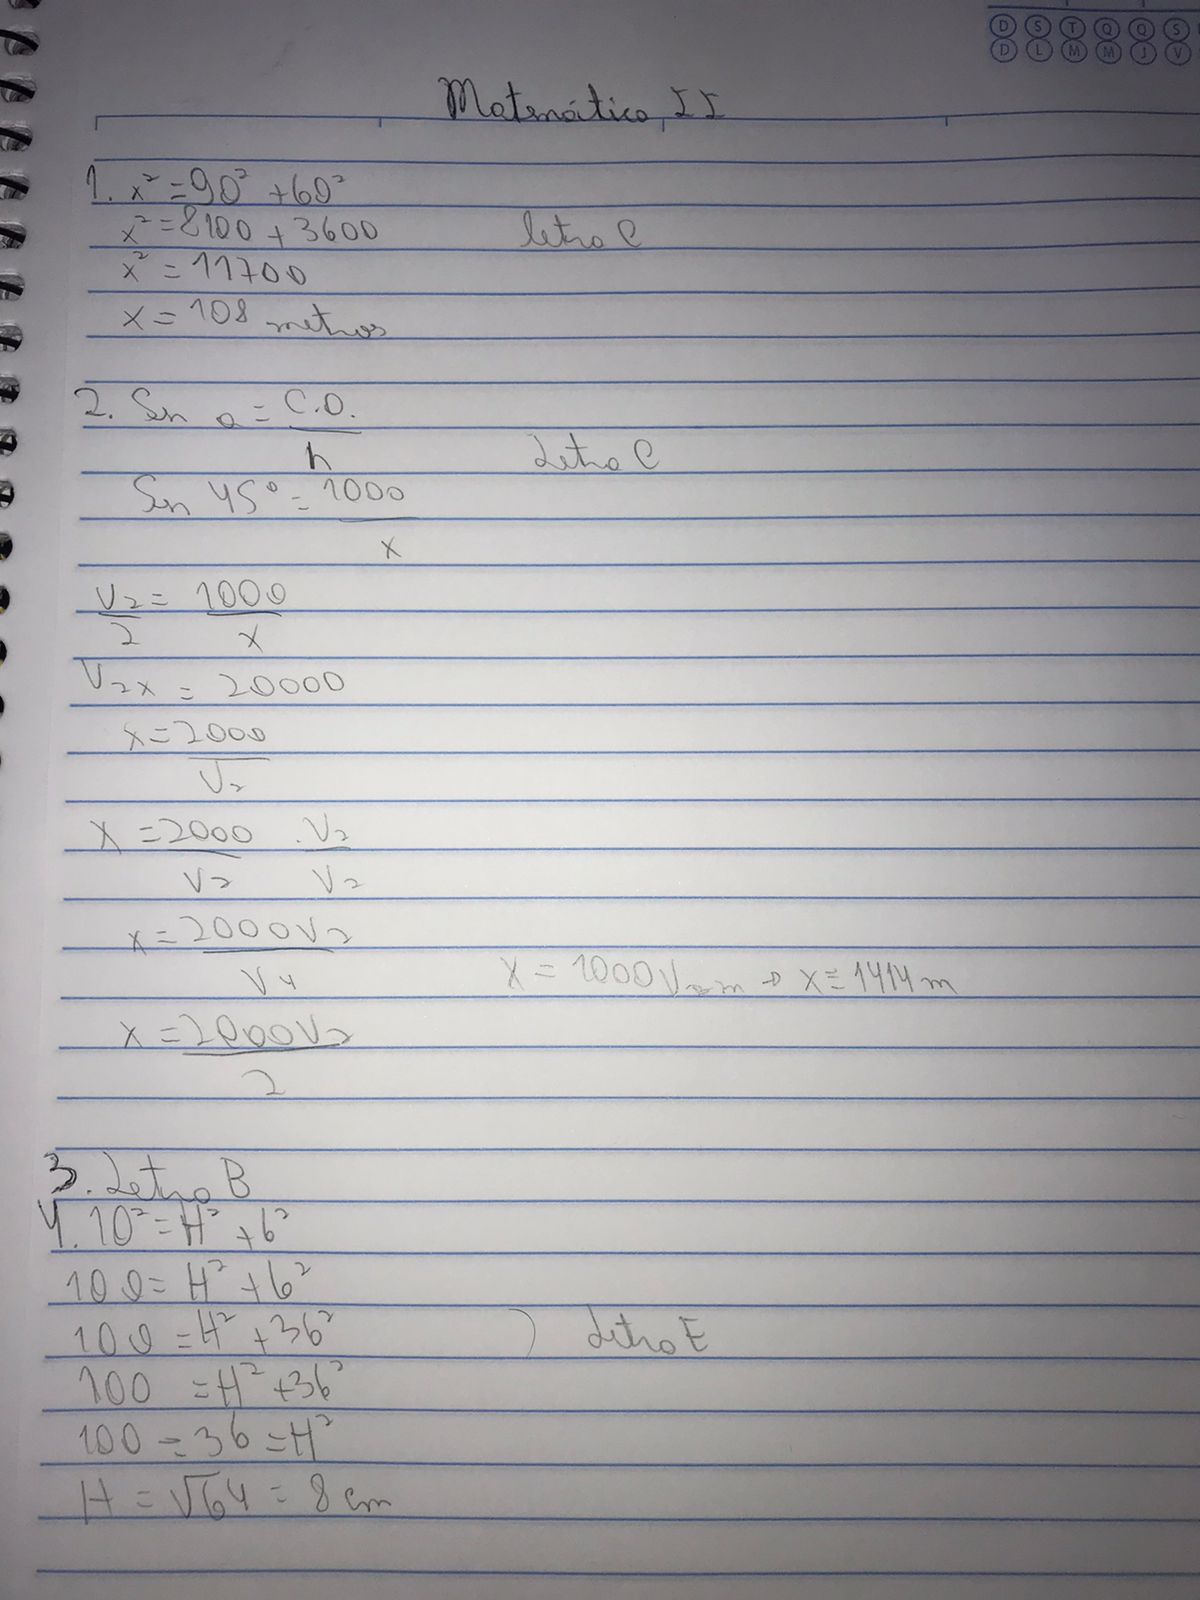 D S T Q Q S
D L M M J V
Matemática II
1. x² = 90² + 60²
x² = 8100 + 3600 letra C
x² = 11700
x = 108 metros
2. Sen a = C.O.
h Letra C
Sen 45° = 1000
x
√2 = 1000
2 x
√2x = 20000
x = 2000
√2
x = 2000 . √2
√2 √2
x = 2000√2
√4 x = 1000√2 m → x = 1414 m
x = 2000√2
2
3. Letra B
4. 10² = H² + 6²
100 = H² + 6²
100 = H² + 36² ) Letra E
100 = H² + 36²
100 - 36 = H²
H = √64 = 8 cm